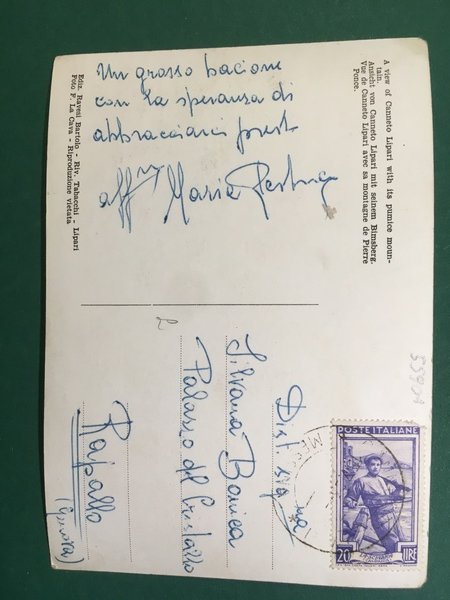 A view of Canneto Lipari with its pumice moun-
tain.
Ansicht von Canneto Lipari mit seinem Bimsberg.
Vue de Canneto Lipari avec sa montagne de Pierre
Ponce.
Un grosso bacione
con la speranza di
abbracciarci prest
Maria
Ediz. Ravesi Bartolo - Riv. Tabacchi - Lipari
Foto F. La Cava - Riproduzione vietata
POSTE ITALIANE
20 LIRE
ME
Dist. sig.na
Silvana
Palazzo del Cristallo
Rapallo
(Genova)